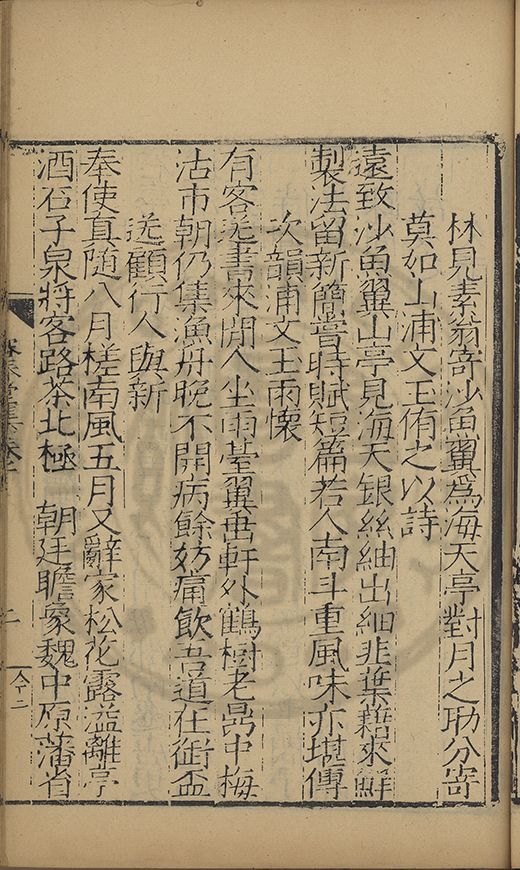 林見素翁寄沙魚翼為海天亭對月之助分寄
莫如山浦文玉侑之以詩
遠致沙魚翼山亭見海天銀絲紬出細韭葉藉來鮮
製法留新簡時賦短篇若人南斗重風味亦堪傳
次韻浦文玉雨懷
有客送書來人坐雨臺翼垂軒外鶴樹老鼎中梅
沽市朝仍集漁舟晚不開病餘妨痛飲吾道在銜盃
送顧行人與新
奉使真隨八月槎南風五月又辭家松花露溢離亭
酒石子泉將客路茶北極　朝廷瞻象魏中原藩省
二